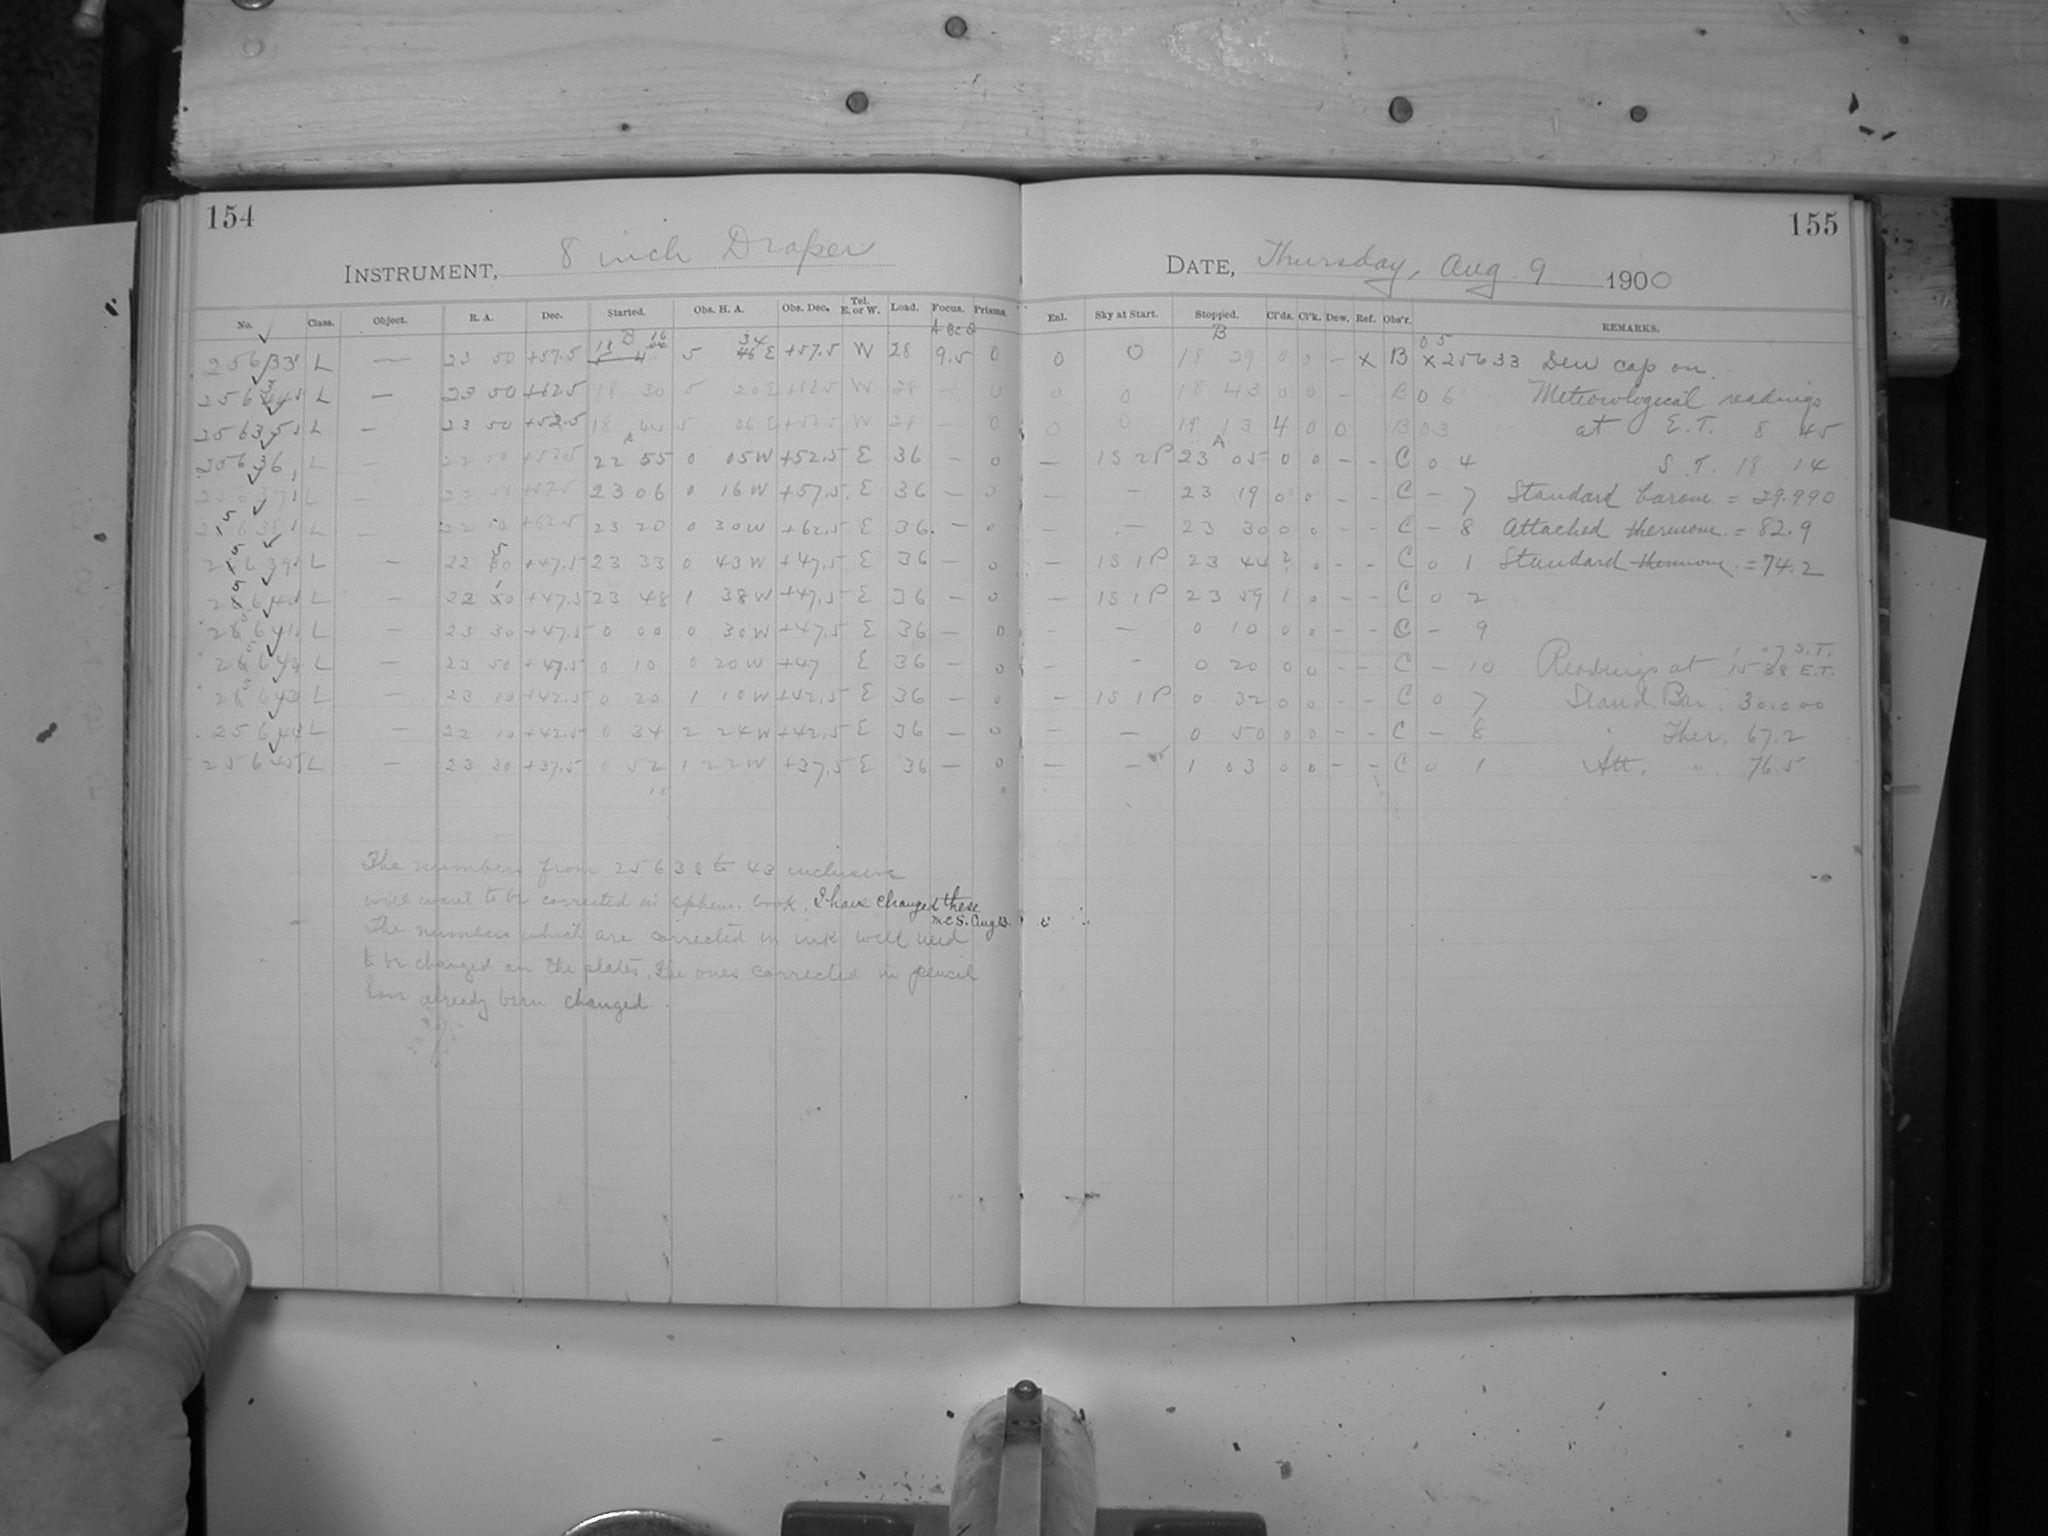 154
155
INSTRUMENT, 8 inch Draper
DATE, Thursday, Aug. 9 1900
No. Class. Object. R. A. Dec. Started. Obs. H. A. Obs. Dec. Tel. E. or W. Load. Focus. Prisms. Enl. Sky at Start. Stopped. Cl'ds. Cl'k. Dew. Ref. Obs'r. REMARKS.
25633 L — 23 50 +57.5 18 16 5 34 E +57.5 W 28 9.5 0 0 0 18 29 0 0 — x B 05 x 25633 Dew cap on.
25634 L — 23 50 +62.5 18 30 5 20 E +62.5 W 28 — 0 0 0 18 43 0 0 — B 0 6 Meteorological readings
25635 L — 23 50 +52.5 18 44 5 06 E +52.5 W 28 — 0 0 0 19 13 4 0 0 B 0 3 at E.T. 8 45
25636 L — 22 50 +52.5 22 55 0 05 W +52.5 E 36 — 0 — 1S 2P 23 05 0 0 — — C 0 4 S.T. 18 14
25637 L — 22 50 +57.5 23 06 0 16 W +57.5 E 36 — 0 — — 23 19 0 0 — — C — 7 Standard barom. = 29.990
25638 L — 22 50 +62.5 23 20 0 30 W +62.5 E 36 — 0 — — 23 30 0 0 — — C — 8 Attached thermom. = 82.9
25639 L — 22 50 +47.5 23 33 0 43 W +47.5 E 36 — 0 — 1S 1P 23 44 2 0 — — C 0 1 Standard thermom. = 74.2
25640 L — 22 10 +47.5 23 48 1 38 W +47.5 E 36 — 0 — 1S 1P 23 59 1 0 — — C 0 2
25641 L — 23 30 +47.5 0 00 0 30 W +47.5 E 36 — 0 — — 0 10 0 0 — — C — 9
25642 L — 23 50 +47.5 0 10 0 20 W +47 E 36 — 0 — — 0 20 0 0 — — C — 10 Readings at 1 07 S.T. 15 38 E.T.
25643 L — 23 10 +42.5 0 20 1 10 W +42.5 E 36 — 0 — 1S 1P 0 32 0 0 — — C 0 7 Stand. Bar. 30.000
25644 L — 22 10 +42.5 0 34 2 24 W +42.5 E 36 — 0 — — 0 50 0 0 — — C — 8 " Ther. 67.2
25645 L — 23 30 +37.5 0 52 1 22 W +37.5 E 36 — 0 — — 1 03 0 0 — — C 0 1 Att. " 76.5
The numbers from 25638 to 43 inclusive
will want to be corrected in ephem. book. I have changed these
M.C.S. Aug 13.
The numbers which are corrected in ink will need
to be changed on the plates. The ones corrected in pencil
have already been changed.